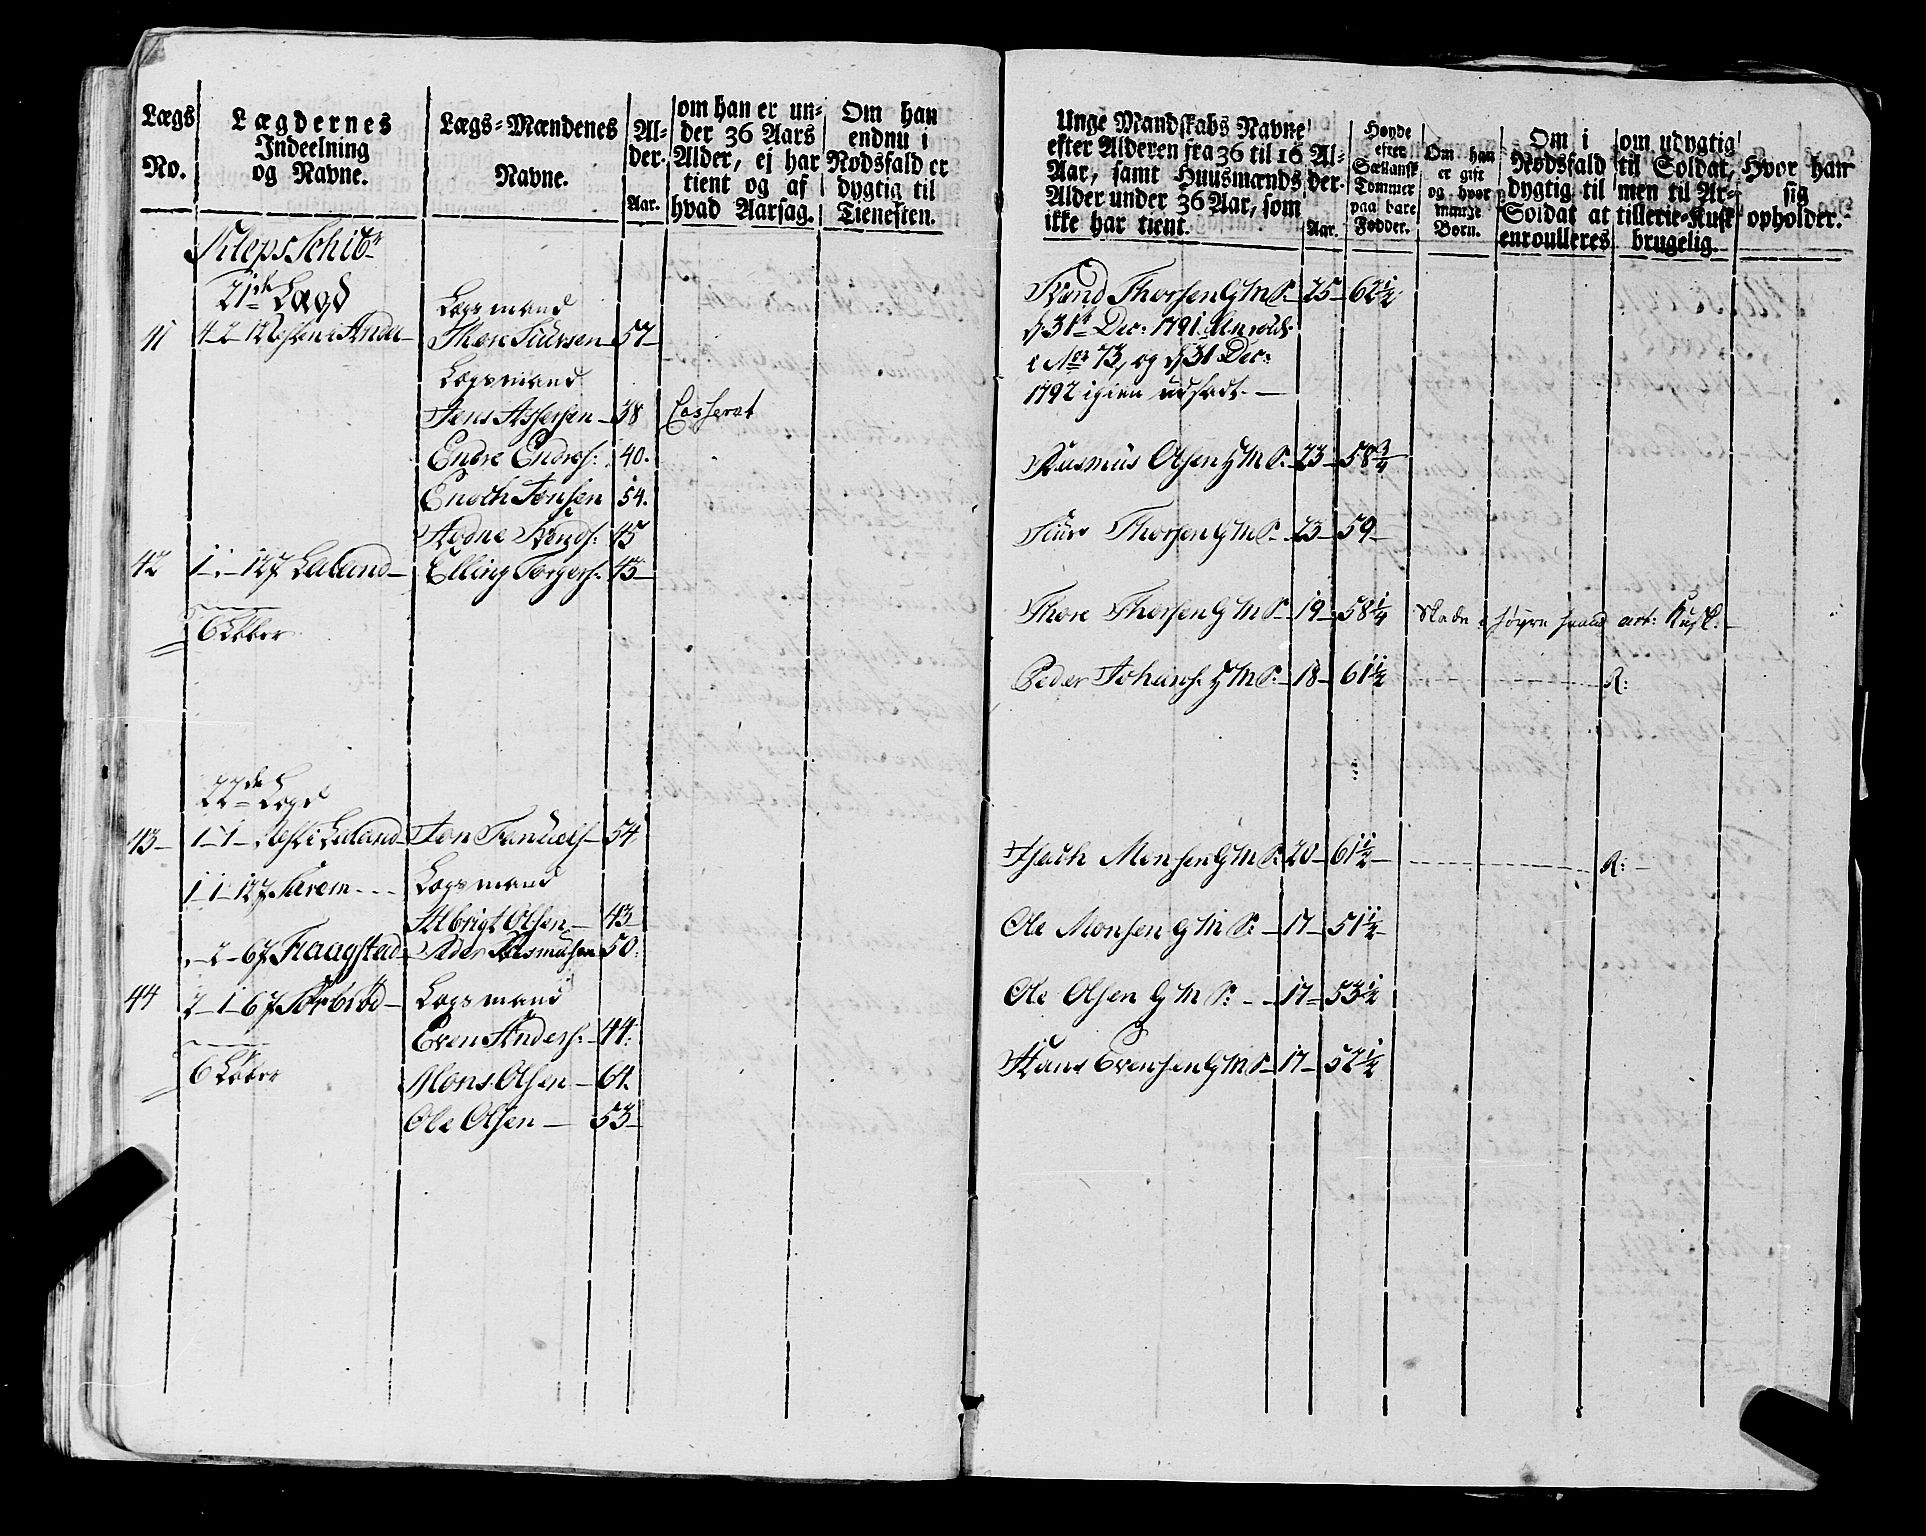 Lægs No.
Lægdernes Indeelning og Navne.
Lægs-Mændenes Navne.
Alder. Aar.
om han er under 36 Aars Alder, ej har tient og af hvad Aarsag.
Om han endnu i Nødsfald er dygtig til Tienesten.
Kleps Schibr
21de Lægd
Lægsmand
41 4-2 Thore Siursen 57
Lægsmand
Jens Assersen 38 Casserat
Endre Endres: 40.
Enoch Jonsen 54.
Aadne Knuds: 45
42 1 - 127 Laland Elling Torgers: 43
6 Løber
22de Lægd
43 1-1- Laland Jon Samuels 54
1 1 127 Særem Lægsmand
Albrigt Olsen 43
- 2 - 67 Haagstad Peder Rasmusen 50.
44 2-1-67 Sørbrød Lægsmand
Even Anders: 44.
6 Løber
Mons Olsen 64.
Ole Olsen 53
Unge Mandskabs Navne efter Alderen fra 36 til 16 Aar, samt Huusmænds Alder under 36 Aar, som ikke har tient.
Alder. Aar.
Høyde efter Sællansk Tommer paa bare Fødder.
Om han er gift og hvor mange Børn.
Om i Nødsfald dygtig til Soldat at enroulleres
om udygtig til Soldat, men til Artillerie-Kusk brugelig.
Hvor han sig opholder.
Knud Thorsen G M S. 25 62 1/2
d 31te Dec: 1791 Enrold:
e No 73, og d 31 Dec:
1792 igien udsadt.
Rasmus Olsen G M S. 23 58 3/4
Siur Thorsen G M S. 23 59
Thore Thorsen G M S. 19 58 1/4 Skade i høyre haand art: Kusk.
Peder Johans: G M S. 18 61 1/2 R:
Isach Monsen G M S. 20 61 1/2 R:
Ole Monsen G M S: 17 51 1/2
Ole Olsen G M S: 17 53 1/2
Hans Evensen G M S 17 52 1/2